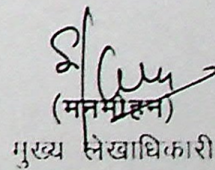 (मनमोहन)
मुख्य लेखाधिकारी